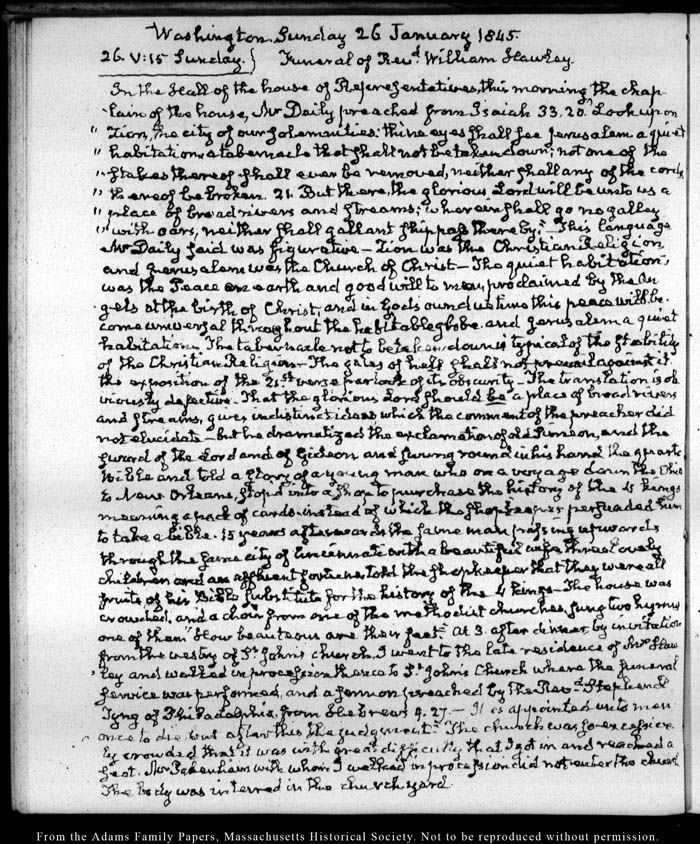 Washington Sunday 26 January 1845.
26. V:15 Sunday. } Funeral of Revd. William Hawley.
In the Hall of the house of Representatives, this morning the chap-
lain of the house, Mr Daily preached from Isaiah 33.20. Look upon
" Zion, the city of our solemnities: thine eyes shall see Jerusalem a quiet
" habitation, a tabernacle that shall not be taken down; not one of the
" stakes thereof shall ever be removed, neither shall any of the cords
" thereof be broken. 21. But there, the glorious Lord will be unto us a
" place of broad rivers and streams; wherein shall go no galley
" with oars, neither shall gallant ship pass thereby. — This language
Mr Daily said was figurative — Zion was the Christian Religion
and Jerusalem was the Church of Christ — The quiet habitation,
was the Peace on earth and good will to men, proclaimed by the An-
gels at the birth of Christ, and in God's own due time this peace will be-
come universal throughout the habitable globe. and Jerusalem a quiet
habitation. The tabernacle not to be taken down is typical of the stability
of the Christian Religion — The gates of hell shall not prevail against it.
the exposition of the 21.st verse partook of its obscurity — The translation is ob-
viously defective. That the glorious Lord should be a place of broad rivers
and streams, gives indistinct ideas which the comment of the preacher did
not elucidate — but he dramatized the exclamation of old Simeon, and the
sword of the Lord and of Gideon and swung round in his hand the quarto
Bible and told a story of a young man who on a voyage down the Ohio
to New Orleans, stop'd into a shop to purchase the history of the 4 kings
meaning a pack of cards. instead of which the shopkeeper persuaded him
to take a bible. 15 years afterwards the same man passing upwards
through the same city of Cincinnati with a beautiful wife three lovely
children and an affluent fortune, told the shopkeeper that they were all
fruits of his Bible substitute for the history of the 4 kings — The house was
crowded, and a choir from one of the methodist churches, sung two hymns
one of them "How beauteous are their feet." At 3. after dinner, by invitation
from the vestry of St. John's church, I went to the late residence of Mr Haw-
ley and walked in procession thence to St. John's Church where the funeral
service was performed, and a sermon preached by the Revd. Stephen
Tyng of Philadelphia, from Hebrews 9.27. — It is appointed unto men
once to die, but after this the judgment." The church was so excessive-
ly crowded that it was with great difficulty that I got in and reached a
seat. Mr Pakenham with whom I walked in procession did not enter the church
The body was interred in the church yard.
From the Adams Family Papers, Massachusetts Historical Society. Not to be reproduced without permission.